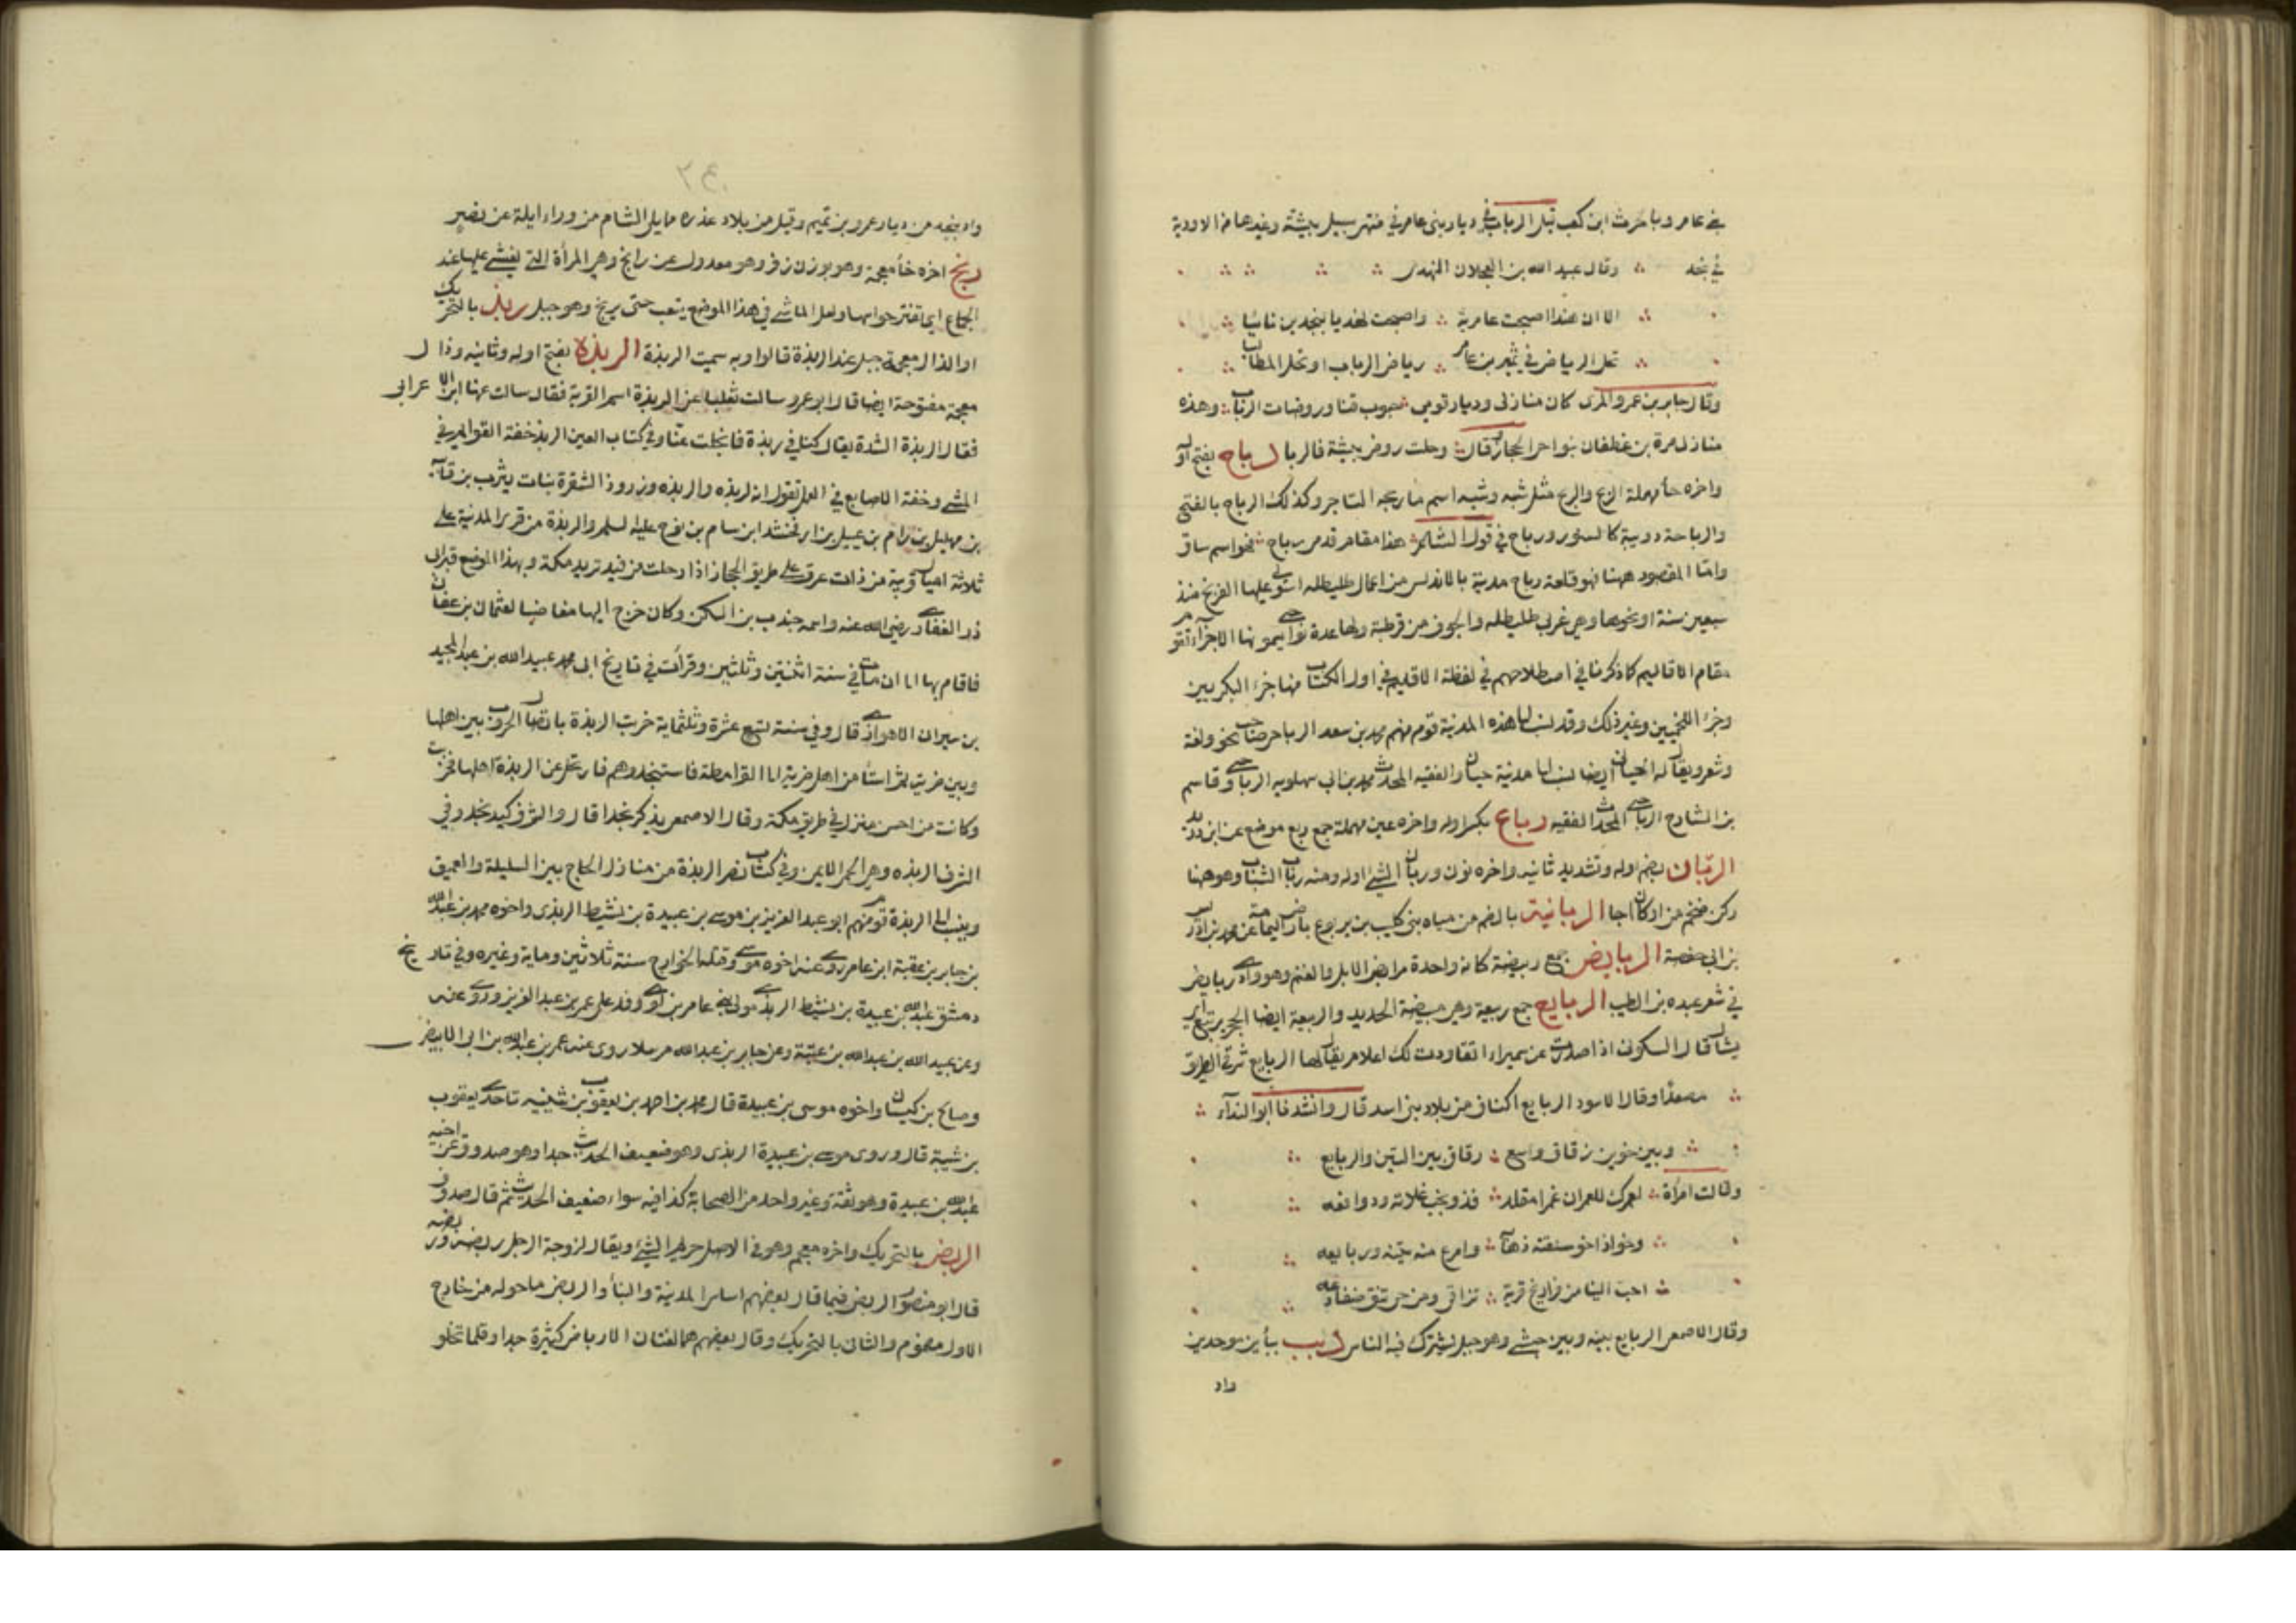 بني عامر وبالحرث ابن كعب قبل الرباب في ديار بني عامر في منتهى سيل بيشة وغيرها من الاودية
في نجد وقال عبد الله بن العجلان النهدي
الا ان هندا اصبحت عامرية واصبحت نهديا بنجدين نائيا
تحل الرياض في نمير بن عامر رياض الرباب او تحل المطاليا
وقال جابر بن عمرو المري كان منازلي وديار قومي جنوب قنا وروضات الرباب وهذه
منازل مرة بن غطفان بنواحي الحجاز قال وحلت روض بيشة فالربا رباح بفتح اوله
واخره حاء مهملة الربح والربح مثل شبه وشبه اسم ما ربحه التاجر وكذلك الرباح بالفتح
والرباحة دويبة كالسنور ورباح في قول الشاعر هذا مقام قدمي رباح نحو اسم ساق
واما المقصود ههنا فهو قلعة رباح مدينة بالاندلس من اعمال طليطله استولى عليها الفرنج منذ
سبعين سنة او نحوها وهي غربي طليطله والجوف من قرطبة ولها عدة يسمونها الاجزاء تقوم
مقام الاقاليم كما ذكرنا في اصطلاحهم في لفظة الاقليم في اول الكتاب منها جزء البكريين
وجزء اللخميين وغير ذلك وقد نسب الى هذه المدينة قوم منهم محمد بن سعد الرباحي صاحب نحو ولغة
وشعر ويقال له الجياني ايضا نسب الى مدينة جيان والفقيه المحدث محمد بن ابي سهلويه الرباحي وقاسم
بن الشارح الرباحي المحدث الفقيه رباع بكسر اوله واخره عين مهملة جمع ربع موضع عن ابن دريد
الربان بضم اوله وتشديد ثانيه واخره نون وربان الشئ اوله ومنه ربان الشباب وهو ههنا
ركن ضخم من اركان اجا الربانية بالضم من مياه بني كليب بن يربوع بارض اليمامة عن محمد بن ادريس
بن ابي حفصة الربايض جمع ربيضة كانه واحدة مرابض الابل والغنم وهو واد ربايض
في شعر عبده بن الطيب الربايع جمع ربيعة وهي بيضة الحديد والربيعة ايضا الحجر يرتبع اي
يشال قال السكوني اذا اصدرت عن سميراء اتقاودت لك اعلام يقال لها الربايع شرقي الطريق
مصعدا وقال الاسود الربايع اكناف من بلاد بني اسد قال وانشدنا ابو الندآء
وبين خوين زقاق واسع زقاق بين التين والربايع
وقالت امرأة لعمرك للعمران غمرا مقلد فذو نجب غلانه ودوافعه
وخو اذا خو سقته ذهآ وامرع منه تينه وربايعه
احب الينا من فراريخ قرية تزاقي ومن حي تنق ضفادعه
وقال الاصمعي الربايع بينه وبين حبشي وهو جبل يشترك فيه الناس ربب بباءين موحدين
واد
واد بنجد من ديار عمرو بن تميم وقيل من بلاد عذره مما يلي الشام من وراء ايلة عن نصر
ربخ اخره خاء معجمة وهو بوزن زفر وهو معدول عن رابخ وهي المرأة التي يغشى عليها عند
الجماع اي تفتر حواسها ولعل الماشي في هذا الموضع يتعب حتى يربخ وهو جبل ربذ بالتحريك
والذال معجمة جبل عند الربذة قالوا وبه سميت الربذة الربذة بفتح اوله وثانيه وذال
معجمة مفتوحة ايضا قال ابو عمرو سالت ثعلبا عن الربذة اسم القرية فقال سالت عنها ابن الاعرابي
فقال الربذة الشدة يقال كنا في ربذة فانجلت عنا وفي كتاب العين الربذ خفة القوايم في
المشي وخفة الاصابع في العمل تقول انه لربذه والربذه وزرود الشقرة بنات يثرب بن قآنية
بن مهليل بن رام بن عبيل بن ارفخشد ابن سام بن نوح عليه السلام والربذة من قرى المدينة على
ثلاثة اميال قريبة من ذات عرق على طريق الحجاز اذا رحلت من فيد تريد مكة وبهذا الموضع قبر ابي
ذر الغفاري رضي الله عنه واسمه جندب بن السكن وكان خرج اليها مغاضبا لعثمان بن عفان
فاقام بها الى ان مات في سنة اثنتين وثلثين وقرأت في تاريخ ابي محمد عبيد الله بن عبد المجيد
بن سيران الاهوازي قال وفي سنة تسع عشرة وثلثماية خربت الربذة باتصال الحروب بين اهلها
وبين ضرية ثم استأمن اهل ضرية الى القرامطة فاستنجدوهم فارتحل عن الربذة اهلها فخربت
وكانت من احسن منزل في طريق مكة وقال الاصمعي يذكر نجدا قال والشرف كبد نجد وفي
الشرف الربذه وهي الحمى الايمن وفي كتاب نصر الربذة من منازل الحاج بين السليلة والعميق
وينسب الى الربذة قوم منهم ابو عبد العزيز بن موسى بن عبيدة بن نشيط الربذي واخوه محمد بن عبد الله
بن جابر بن عقبة ابن عامر روى عنه اخوه موسى وقتلته الخوارج سنة ثلاثين وماية وغيره وفي تاريخ
دمشق عبد الله بن عبيدة بن نشيط الربذي مولى بني عامر بن لؤي وفد على عمر بن عبد العزيز وروى عنه
وعن عبيد الله بن عبد الله بن عتبة وعن جابر بن عبد الله مرسلا روى عنه عمر بن عبد الله بن ابي الابيض
وصالح بن كيسان واخوه موسى بن عبيدة قال محمد بن احمد بن يعقوب بن شيبه ثنا جدي يعقوب
بن شيبة قال وروى موسى بن عبيدة الربذي وهو ضعيف الحديث جدا وهو صدوق عن اخيه
عبد الله بن عبيدة وهو ثقة وغير واحد من الصحابة كذا فيه سواء ضعيف الحديث ثم قال صدوق
الربض بالتحريك واخره معجم وهو في الاصل حريم الشئ ويقال لزوجة الرجل ربضه وربضه
قال ابو منصور الربض فيما قال بعضهم اساس المدينة والبناء والربض ما حوله من خارج
الاول مضموم والثاني بالتحريك وقال بعضهم هما لغتان الارباض كثيرة جدا وقلما تخلو